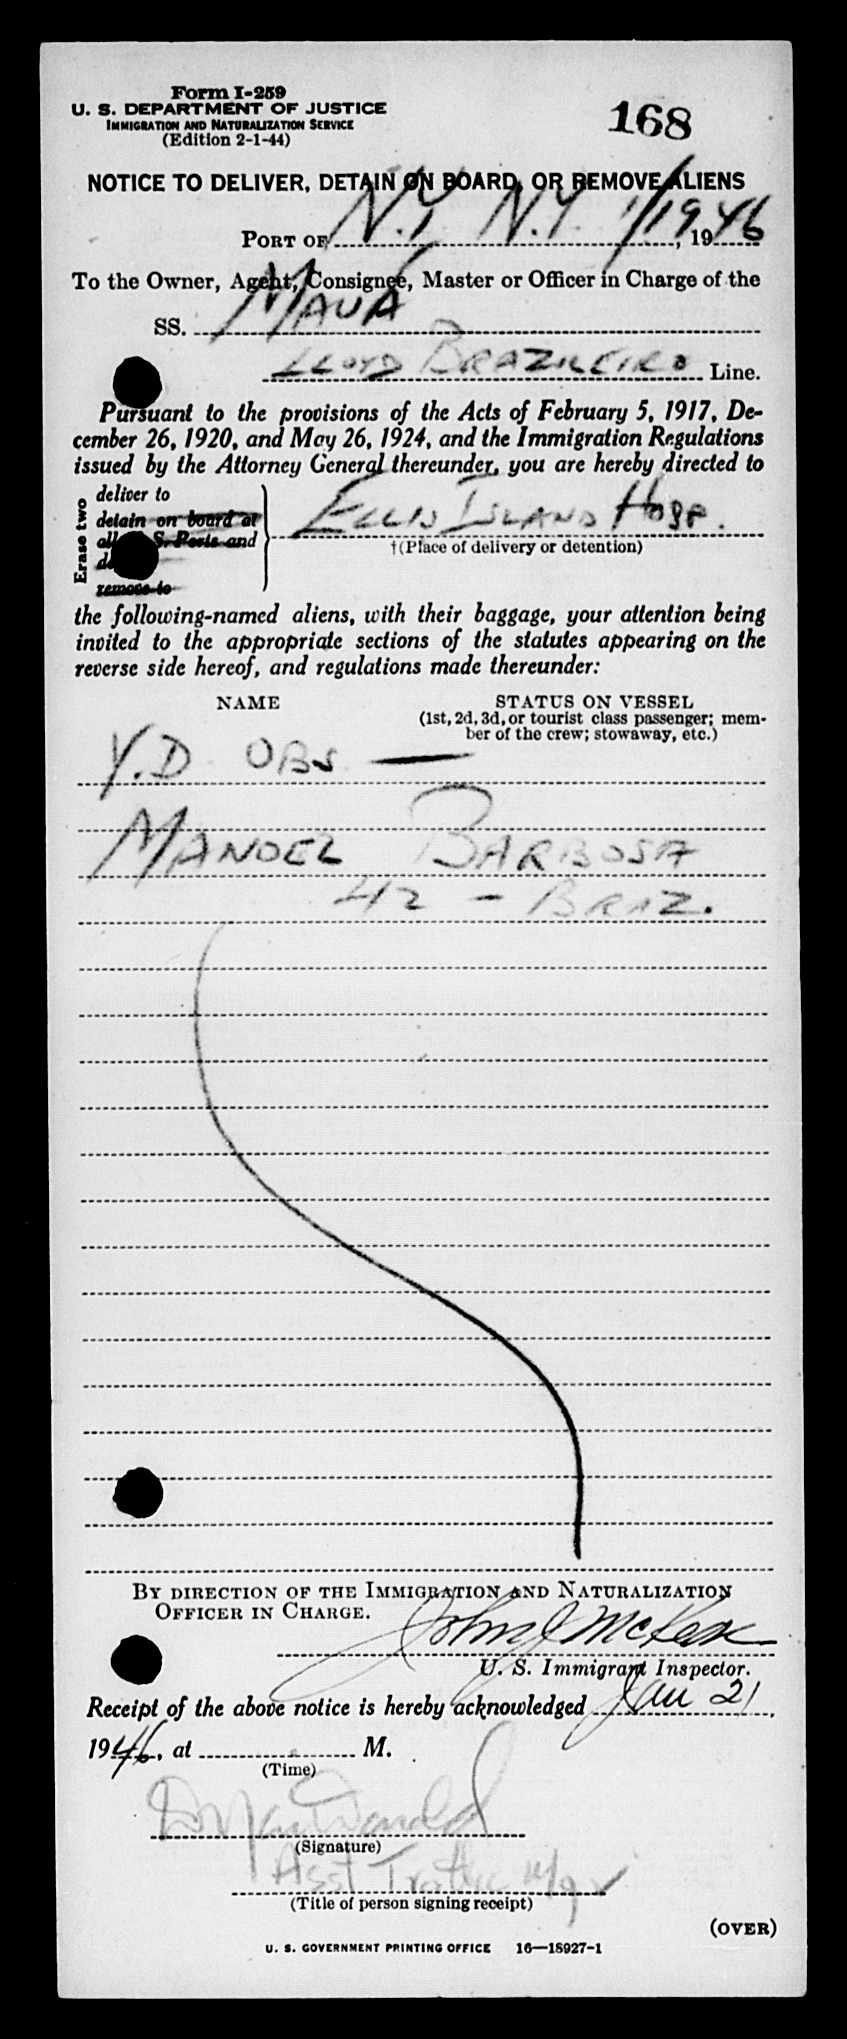 Form I-259
U. S. DEPARTMENT OF JUSTICE
IMMIGRATION AND NATURALIZATION SERVICE
(Edition 2-1-44)
168
NOTICE TO DELIVER, DETAIN ON BOARD, OR REMOVE ALIENS
PORT OF N.Y. N.Y. 1/19, 1946
To the Owner, Agent, Consignee, Master or Officer in Charge of the
SS. MAUA
LLOYD BRAZILEIRO Line.
Pursuant to the provisions of the Acts of February 5, 1917, De-
cember 26, 1920, and May 26, 1924, and the Immigration Regulations
issued by the Attorney General thereunder, you are hereby directed to
Erase two
deliver to
detain on board at
all S. Ports and
remove to
ELLIS ISLAND HOSP.
†(Place of delivery or detention)
the following-named aliens, with their baggage, your attention being
invited to the appropriate sections of the statutes appearing on the
reverse side hereof, and regulations made thereunder:
NAME
STATUS ON VESSEL
(1st, 2d, 3d, or tourist class passenger; mem-
ber of the crew; stowaway, etc.)
V.D OBS —
MANOEL BARBOSA
42 - BRAZ.
BY DIRECTION OF THE IMMIGRATION AND NATURALIZATION
OFFICER IN CHARGE.
John J McKee
U. S. Immigrant Inspector.
Receipt of the above notice is hereby acknowledged Jan 21,
1946, at M.
(Time)
(Signature)
Asst Traffic Mgr
(Title of person signing receipt)
(OVER)
U. S. GOVERNMENT PRINTING OFFICE 16—18927-1